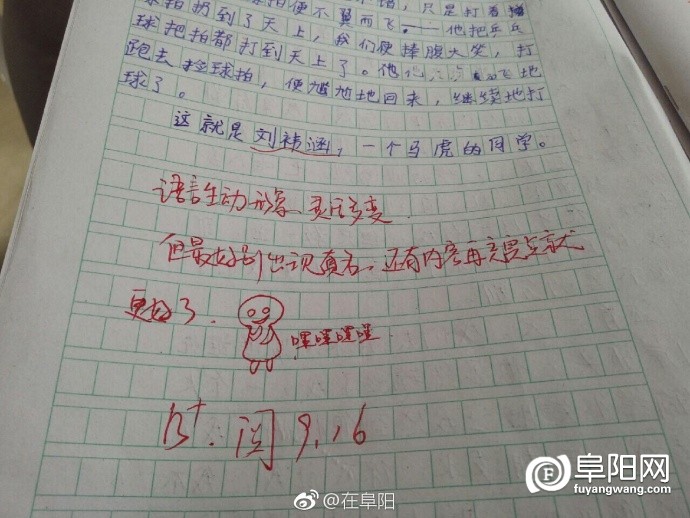 球拍便不翼而飞——他把乒乓
球拍扔到了天上，只是打着
球把拍都打到天上了。我们便捧腹大笑，打
跑去捡球拍，便尴尬地回来，继续地打
球了。
这就是刘祎涵，一个马虎的同学。
语言生动形象、灵活多变
但最好别出现真名，还有内容再充实点就
更好了.
嘿嘿嘿嘿
B+. 阅 9.16
@在阜阳
阜阳网
fuyangwang.com